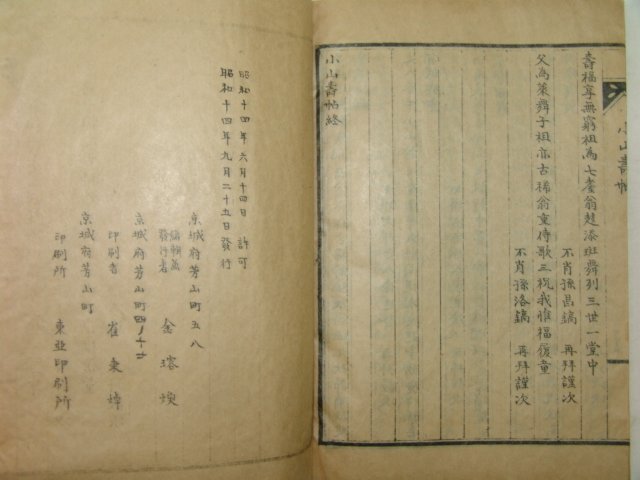 小山壽帖
壽福享無窮祖為七耋翁趍漆班舞列三世一堂中
不肖孫昌鎬 再拜謹次
父為萊舞子祖亦古稀翁童侍歌三祝我惟福復童
不肖孫洛鎬 再拜謹次
小山壽帖終
昭和十四年六月十四日 許可
昭和十四年九月二十五日發行
京城府芳山町五八
編輯兼發行者 金瑢煥
京城府芳山町四ノ十七
印刷者 崔東焯
京城府芳山町
印刷所 東亞印刷所